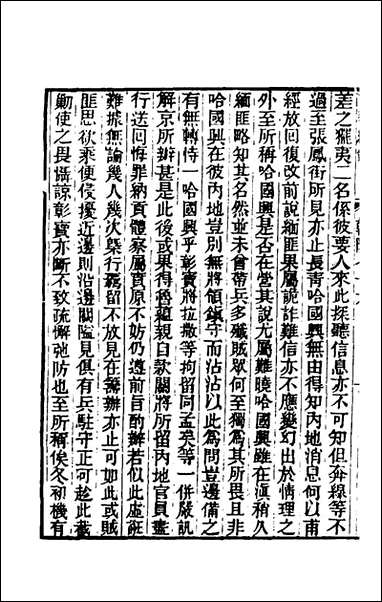 差之玀夷二名係彼要人來此探聽信息亦不可知但奔線等不
過至張鳳街所見亦止長青哈國興無由得知內地消息何以甫
經放回復改前說緬匪果屬詭詐難信亦不應變幻出於情理之
外至所稱哈國興是否在營其說尤屬難曉哈國興雖在滇稍久
緬匪略知其名然並未曾帶兵多殲賊眾何至獨爲其所畏且非
哈國興在彼內地豈別無將領鎮守而沾沾以此爲問豈邊備之
有無轉恃一哈國興乎彰寶將拉撒等拘留同孟矣等一併嚴訊
解京所辦甚是此後或果得魯蘊親自欵關將所留內地官員盡
行送回悔罪納貢體察屬實原不妨仍遵前旨酌辦若似此虛誑
難據無論幾人幾次槩行羈留不放見在籌辦亦止可如此或賊
匪思欲乘便侵擾近邊則沿邊關隘見俱有兵駐守正可趁此截
勦使之畏懾諒彰寶亦斷不致疏懈弛防也至所稱俟冬初機有